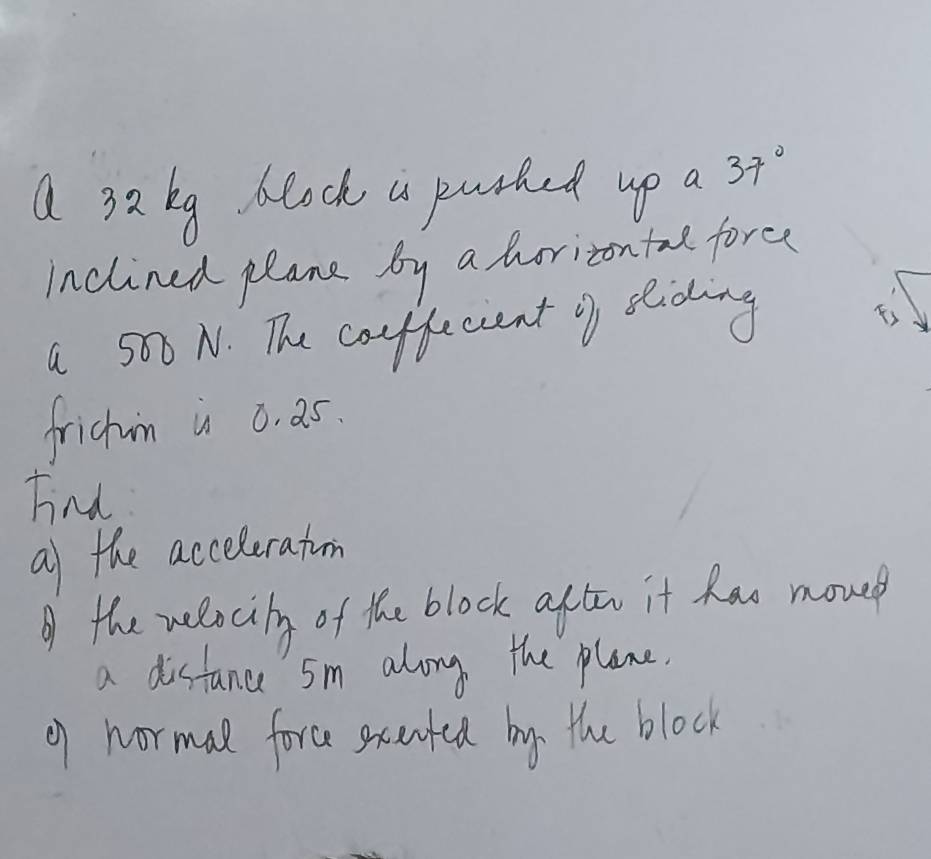 A 32 kg block is pushed up a 37°
inclined plane by a horizontal force
a 500 N. The coeffecient of sliding
friction is 0.25.
Find
a) the acceleration
b) the velocity of the block after it has moved
a distance 5m along the plane.
c) normal force exerted by the block